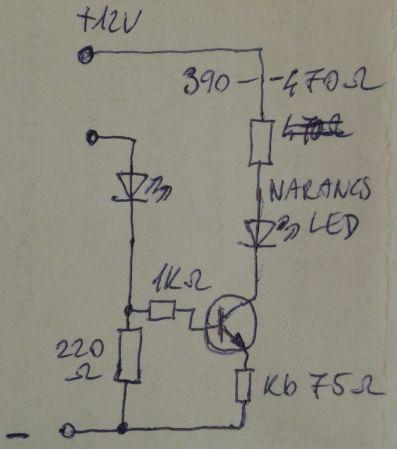 +12V
390 - 470Ω
470Ω
NARANCS
LED
1KΩ
220
Ω
Kb 75Ω
-